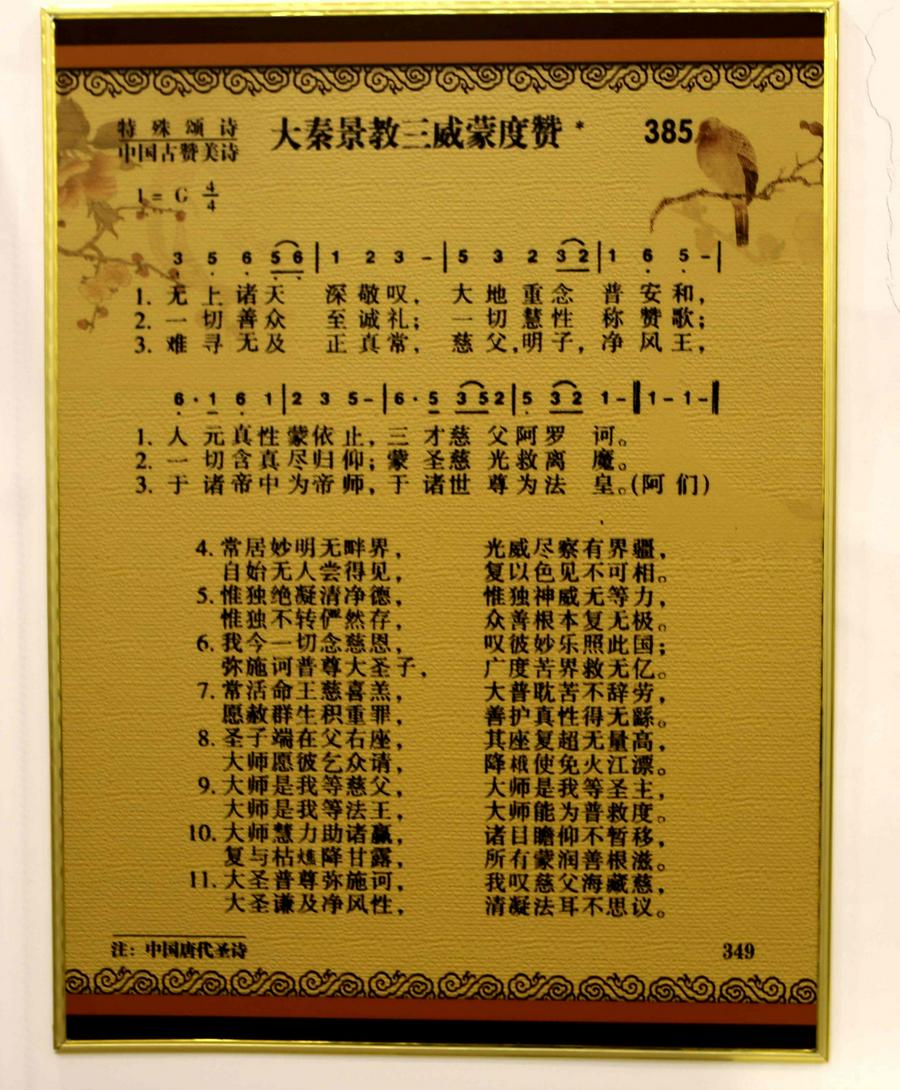 特殊颂诗
大秦景教三威蒙度赞 * 385
中国古赞美诗
1 = G 4/4
3 5 6 5 6 | 1 2 3 - | 5 3 2 3 2 | 1 6 5 - |
1. 无上诸天 深敬叹， 大地重念 普安和，
2. 一切善众 至诚礼； 一切慧性 称赞歌；
3. 难寻无及 正真常， 慈父，明子，净风王，
6 · 1 6 1 | 2 3 5 - | 6 · 5 3 5 2 | 5 3 2 1 - | 1 - 1 - |
1. 人元真性蒙依止，三才慈父阿罗诃。
2. 一切含真尽归仰；蒙圣慈光救离魔。
3. 于诸帝中为帝师，于诸世尊为法皇。(阿们)
4. 常居妙明无畔界， 光威尽察有界疆，
自始无人尝得见， 复以色见不可相。
5. 惟独绝凝清净德， 惟独神威无等力，
惟独不转俨然存， 众善根本复无极。
6. 我今一切念慈恩， 叹彼妙乐照此国；
弥施诃普尊大圣子， 广度苦界救无亿。
7. 常活命王慈喜羔， 大普耽苦不辞劳，
愿赦群生积重罪， 善护真性得无繇。
8. 圣子端在父右座， 其座复超无量高，
大师愿彼乞众请， 降栰使免火江漂。
9. 大师是我等慈父， 大师是我等圣主，
大师是我等法王， 大师能为普救度。
10. 大师慧力助诸羸， 诸目瞻仰不暂移，
复与枯燋降甘露， 所有蒙润善根滋。
11. 大圣普尊弥施诃， 我叹慈父海藏慈，
大圣谦及净风性， 清凝法耳不思议。
注：中国唐代圣诗 349